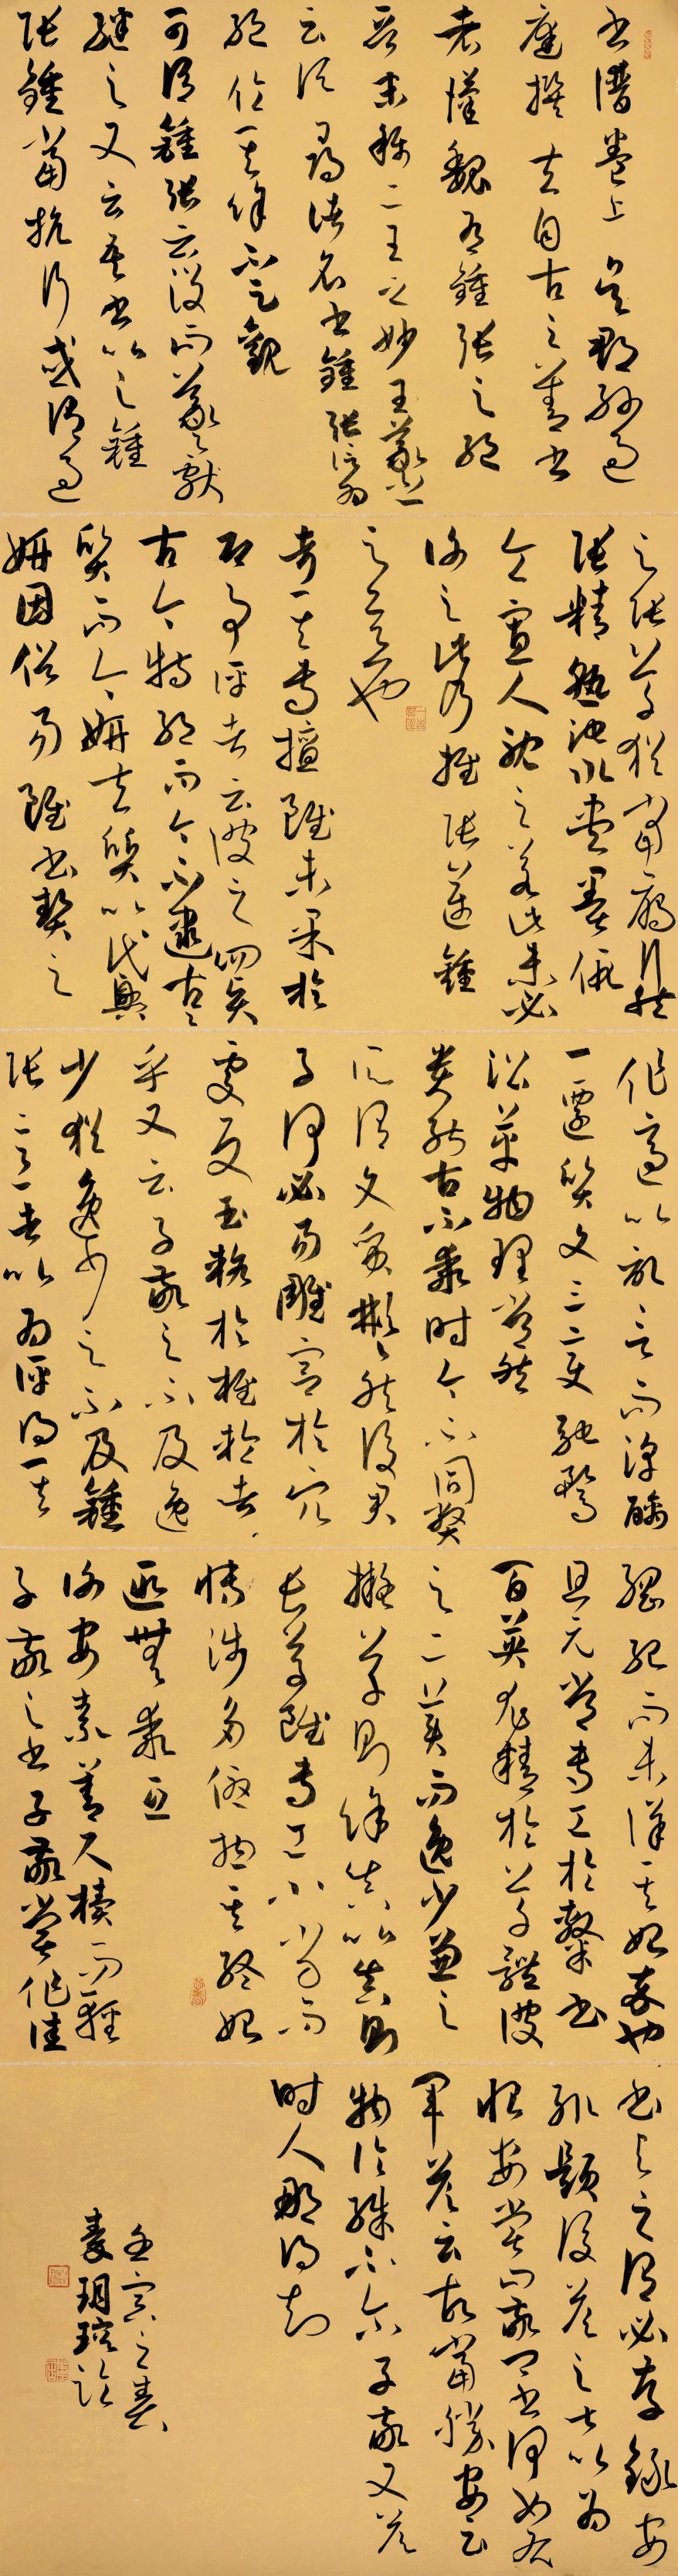 书谱卷上吴郡孙过
庭撰夫自古之善书
者汉魏有钟张之绝
晋末称二王之妙王羲之
云顷寻诸名书钟张信为
绝伦其余不足观
可谓钟张云没而羲献
继之又云吾书比之钟
张钟当抗行或谓过
之张草犹当雁行然
张精熟池水尽墨假
令寡人耽之若此未必
谢之此乃推张迈钟
之意也
专擅虽未果于
评者云彼之四贤
古今特绝而今不逮古古
质而今妍夫质以代兴
妍因俗易虽书契之
作适以记言而淳醨
一迁质文三变驰骛
沿革物理常然
贵能古不乖时今不同弊
所谓文质彬彬然后君
子何必易雕宫于穴
处反玉辂于椎轮者
乎又云子敬之不及逸
少犹逸少之不及钟
张意者以为评得其
纲纪而未详其始卒也
且元常专工于隶书
百英尤精于草体彼
之二美而逸少兼之
拟草则余真比真则
长草虽专工小劣而
博涉多优总其终始
匪无乖互
谢安素善尺牍而轻
子敬之书子敬尝作佳
书与之谓必存录安
辄题后答之甚以为
恨安尝问敬卿书何如右
军答云故当胜安云
物论殊不尔子敬又答
时人那得知
壬寅之春